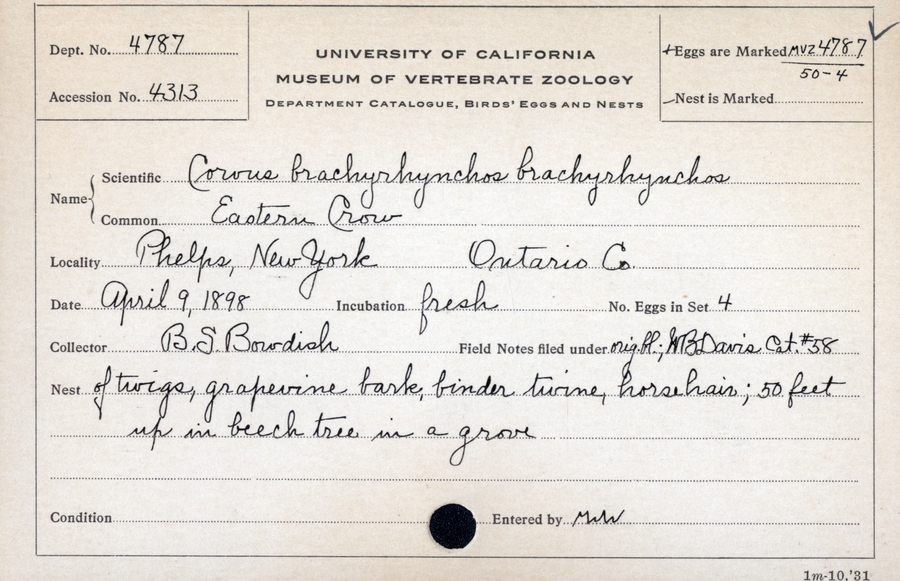 Dept. No. 4787
Accession No. 4313
UNIVERSITY OF CALIFORNIA
MUSEUM OF VERTEBRATE ZOOLOGY
DEPARTMENT CATALOGUE, BIRDS' EGGS AND NESTS
Eggs are Marked MVZ 4787
50-4
Nest is Marked
Name
Scientific Corvus brachyrhynchos brachyrhynchos
Common Eastern Crow
Locality Phelps, New York Ontario Co.
Date April 9, 1898 Incubation fresh No. Eggs in Set 4
Collector B.S. Bowdish Field Notes filed under orig. bl.; WB Davis Cat. #58
Nest of twigs, grapevine bark, binder twine, horsehair; 50 feet
up in beech tree in a grove
Condition Entered by
1m-10,'31